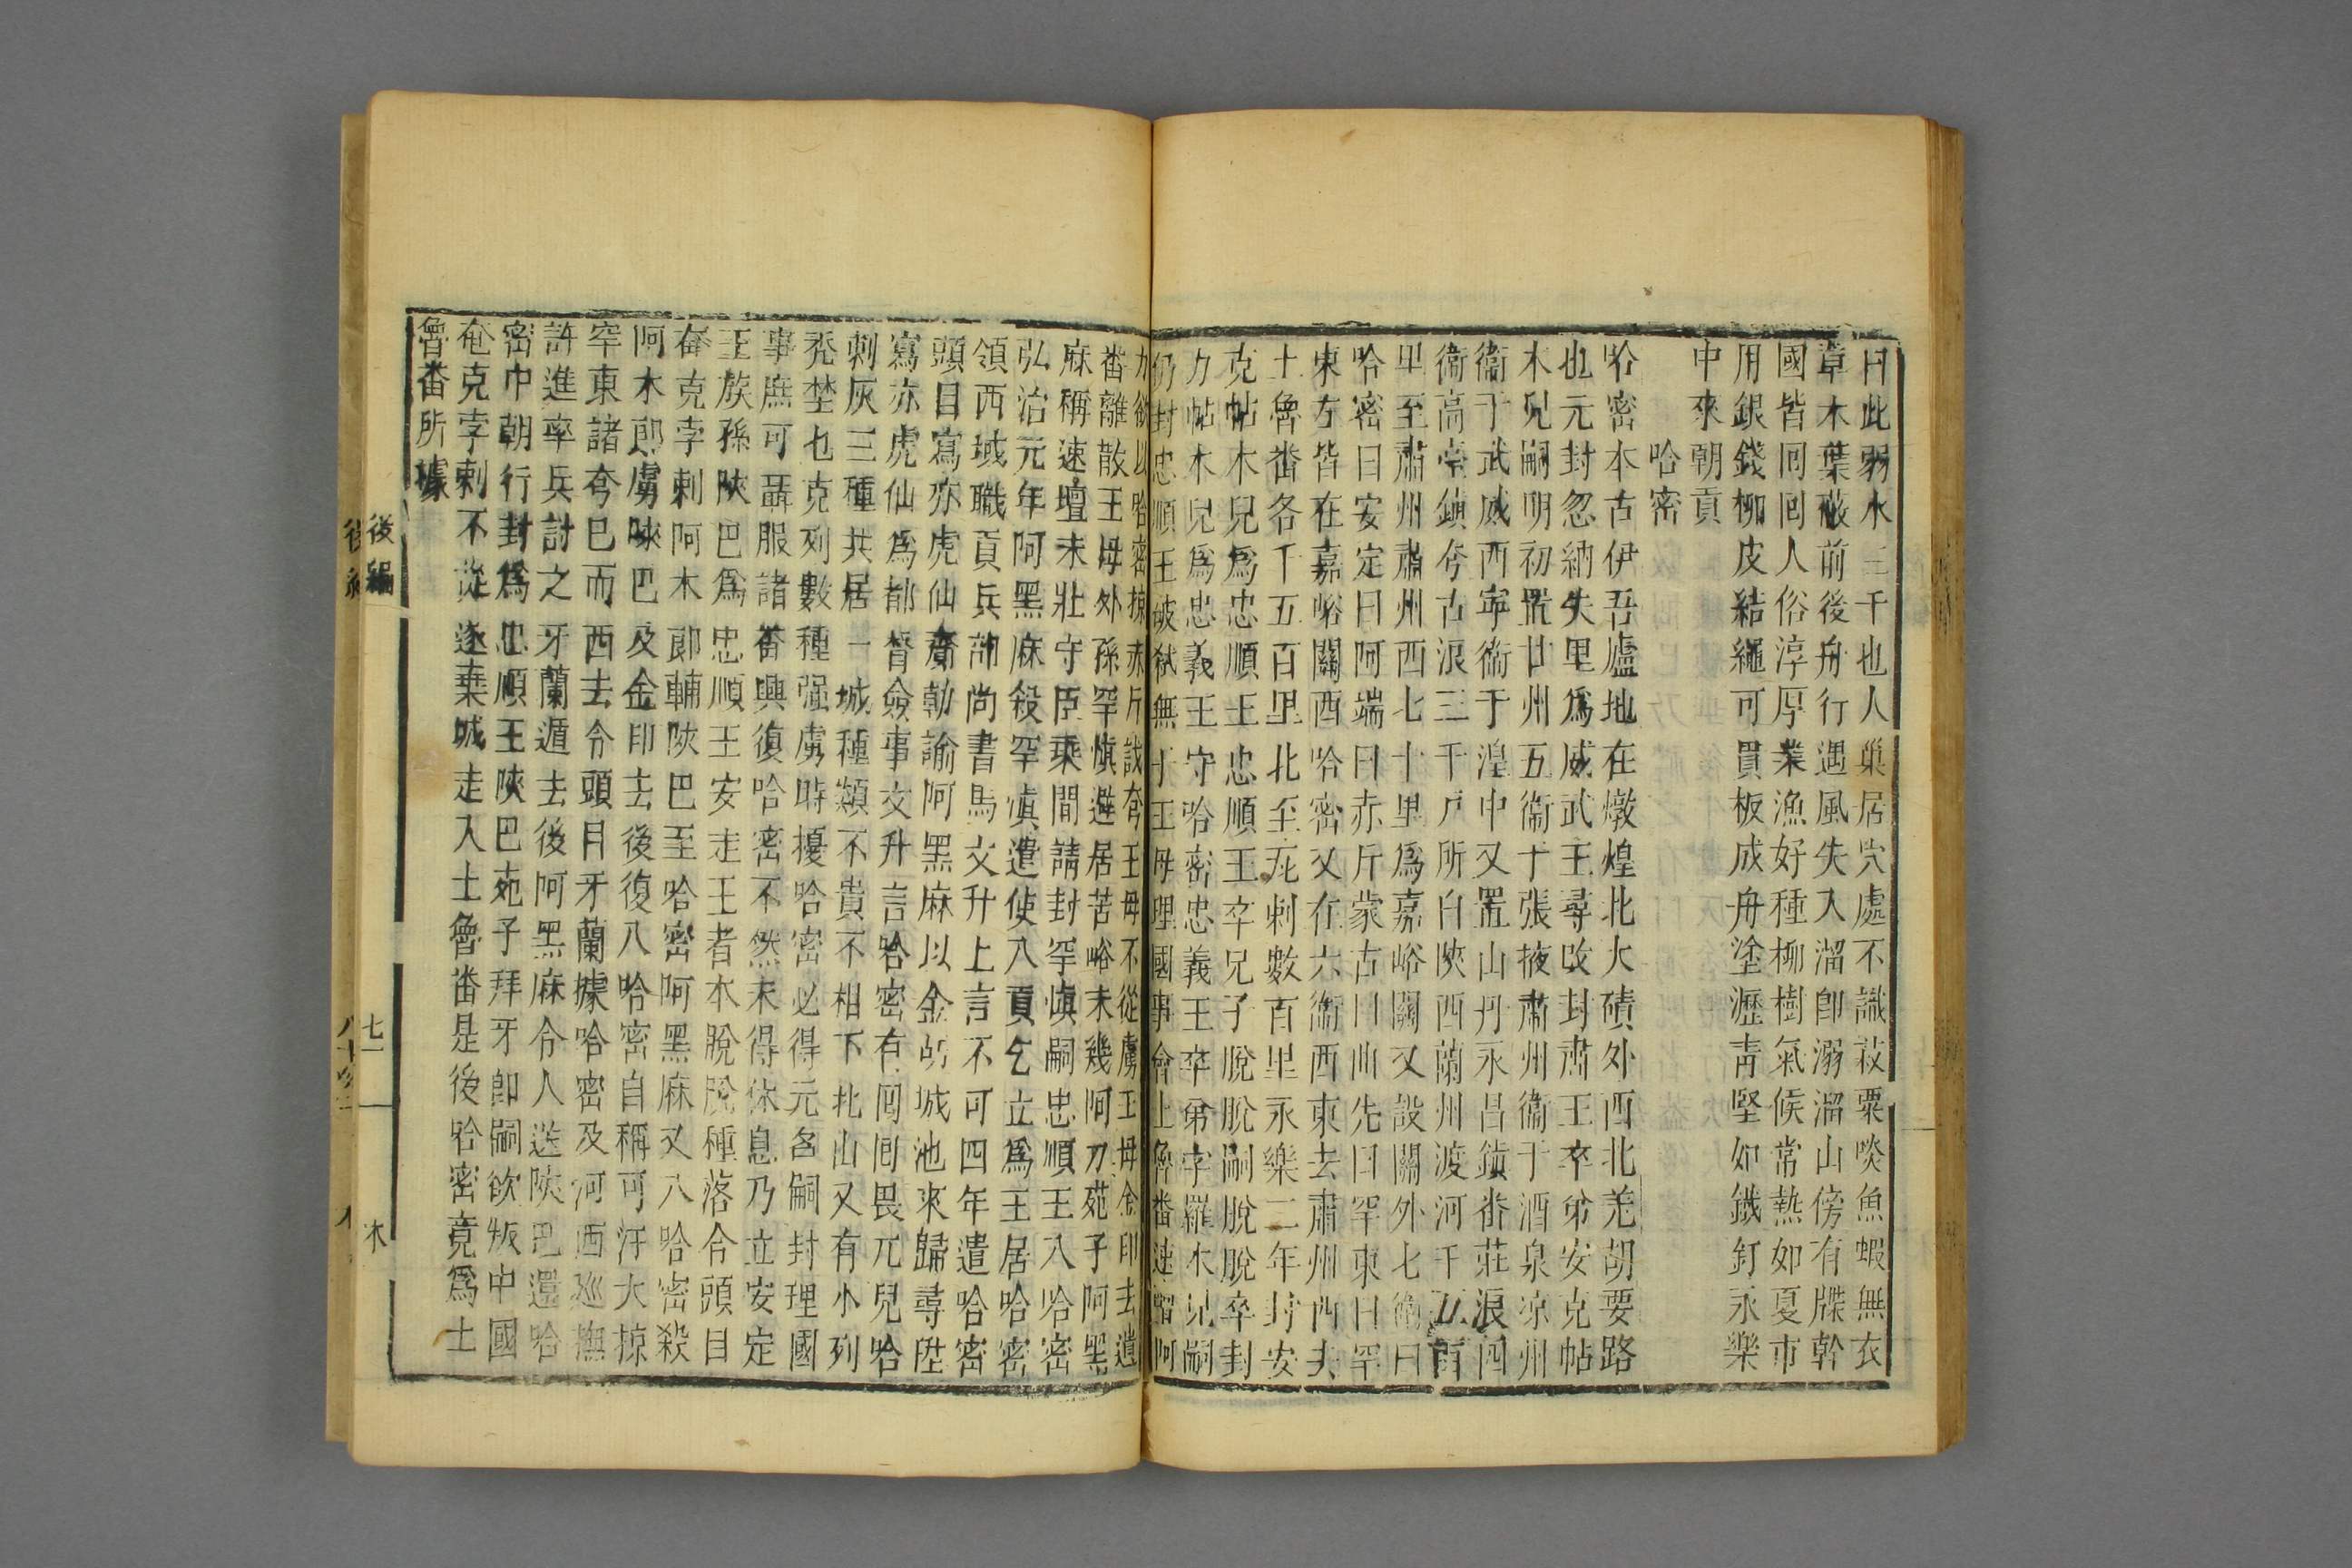 曰此弱水三千也人巢居穴處不識菽粟啖魚蝦無衣
草木葉蔽前後舟行遇風失入溜卽溺溜山傍有牒幹
國皆囘囘人俗淳厚業漁好種柳樹氣候常熱如夏市
用銀錢柳皮結繩可貫板成舟塗瀝靑堅如鐵釘永樂
中來朝貢
哈密
哈密本古伊吾廬地在燉煌北大磧外西北羌胡要路
也元封忽納失里爲威武王尋改封肅王卒弟安克帖
木兒嗣明初置甘州五衞于張掖肅州衞于酒泉凉州
衞于武威西寧衞于湟中又置山丹永昌鎮番莊浪四
衞高臺鎮夸古浪三千戸所自陜西蘭州渡河千五百
里至肅州肅州西七十里爲嘉峪關又設關外七衞曰
哈密曰安定曰阿端曰赤斤蒙古曰曲先曰罕東曰罕
東左皆在嘉峪關西哈密又在六衞西東去肅州西去
土魯番各千五百里北至瓦剌數百里永樂二年封安
克帖木兒爲忠順王忠順王卒兄子脫脫嗣脫脫卒封
力帖木兒爲忠義王守哈密忠義王卒弟孛羅木兒嗣
仍封忠順王被弑無子王母理國事會土魯番速壇阿
力欲以哈密掠赤斤諸夸王母不從虜王母金印去遺
番離散王母外孫罕愼避居苦峪未幾阿力死子阿黑
麻稱速壇未壯守臣乘間請封罕愼嗣忠順王入哈密
弘治元年阿黑麻殺罕愼遣使入貢乞立爲王居哈密
領西域職貢兵部尚書馬文升上言不可四年遣哈密
頭目寫亦虎仙齎勅諭阿黑麻以金印城池來歸尋陞
寫亦虎仙爲都督僉事文升言哈密有囘囘畏兀兒哈
剌灰三種共居一城種類不貴不相下北山又有小列
禿埜乜克列數種强虜時擾哈密必得元名嗣封理國
事庶可聶服諸番興復哈密不然未得休息乃立安定
王族孫陜巴爲忠順王安定王者本脫脫種落令頭目
奄克孛剌阿木郎輔陜巴至哈密阿黑麻又入哈密殺
阿木郎虜陜巴及金印去後復入哈密自稱可汗大掠
罕東諸夸巳而西去令頭目牙蘭據哈密及河西巡撫
許進率兵討之牙蘭遁去後阿黑麻令人送陜巴還哈
密中朝行封爲忠順王陜巴死子拜牙卽嗣欲叛中國
奄克孛剌不從遂棄城走入土魯番是後哈密竟爲土
魯番所據
後編
七一
木